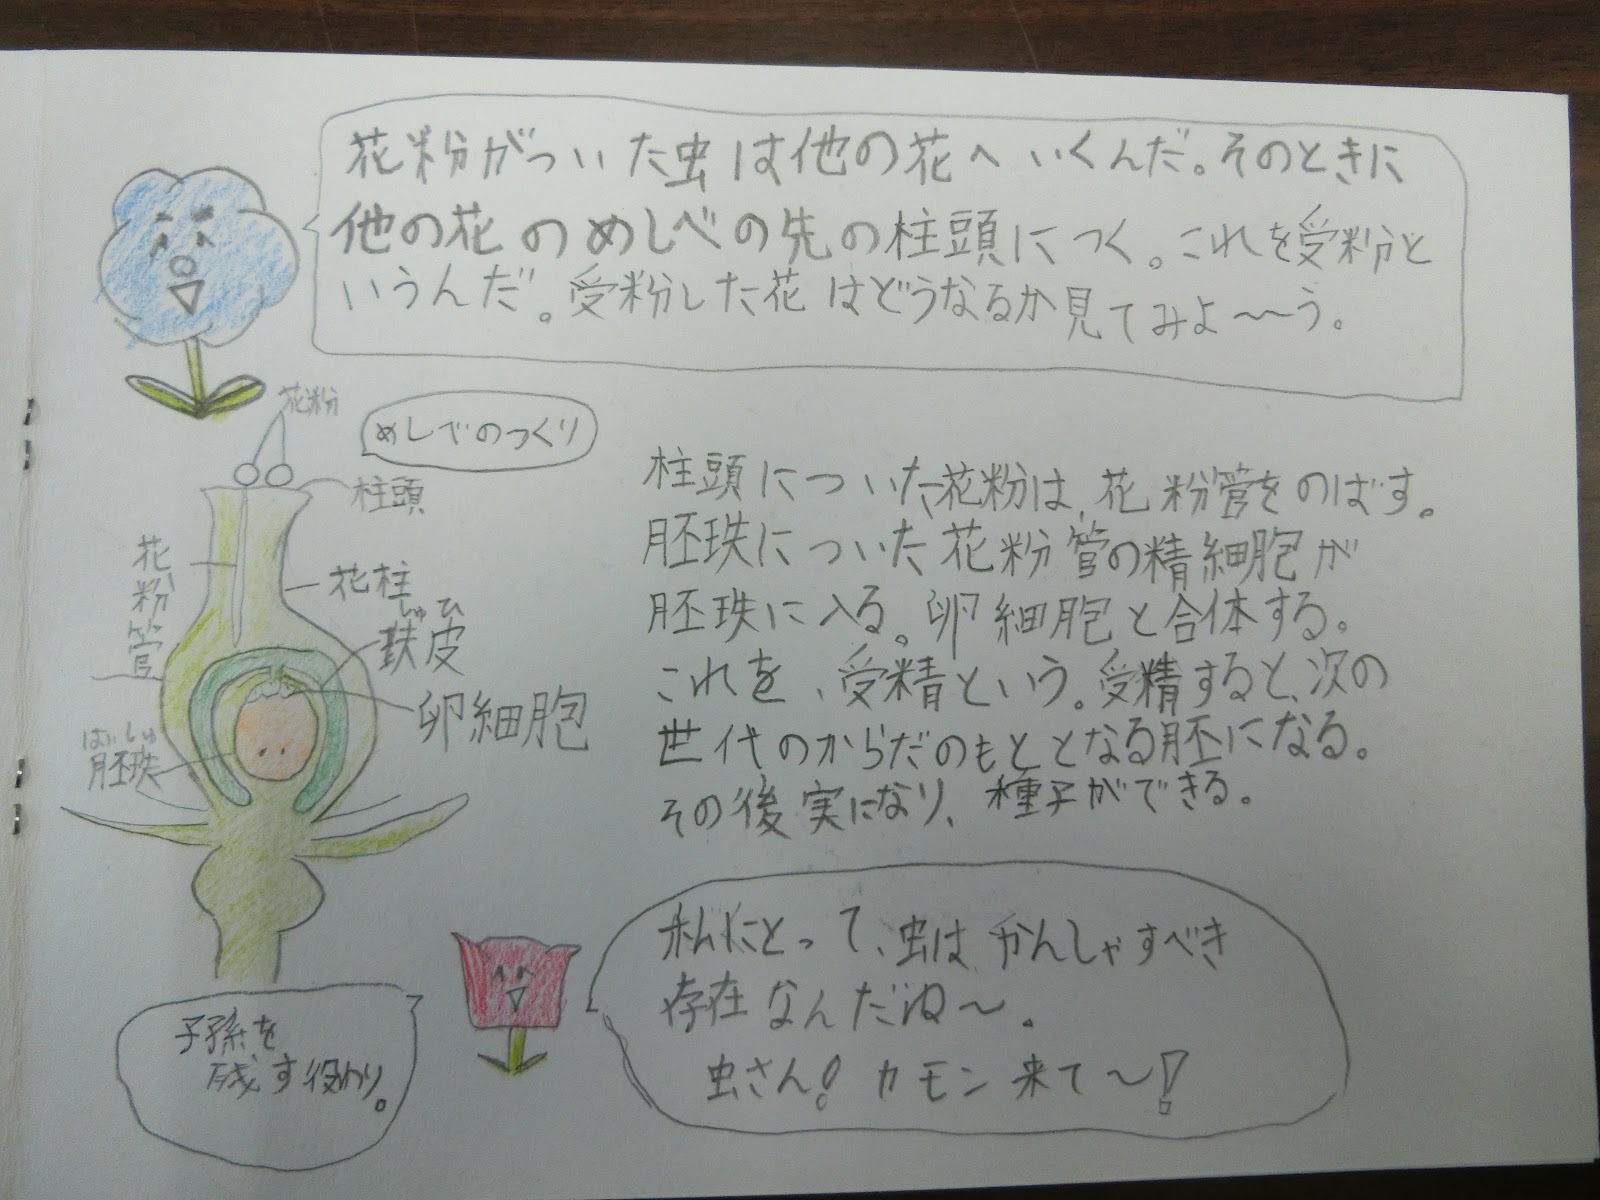 花粉がついた虫は他の花へいくんだ。そのときに
他の花のめしべの先の柱頭につく。これを受粉と
いうんだ。受粉した花はどうなるか見てみよ〜〜う。
花粉
めしべのつくり
柱頭
花粉管
花柱
しゅひ
皮
卵細胞
はいしゅ
胚珠
柱頭についた花粉は、花粉管をのばす。
胚珠についた花粉管の精細胞が
胚珠に入る。卵細胞と合体する。
これを、受精という。受精すると、次の
世代のからだのもととなる胚になる。
その後実になり、種子ができる。
子孫を
残す役わり。
私にとって、虫は、かんしゃすべき
存在なんだね〜。
虫さん!カモン来て〜!